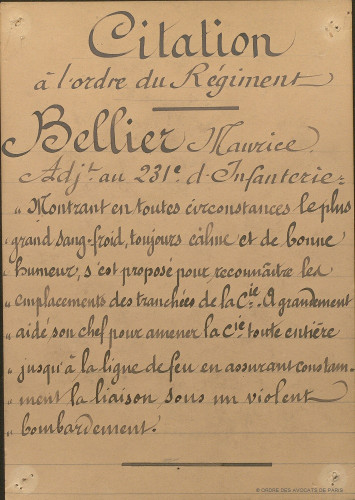 Citation
à l'ordre du Régiment
Bellier Maurice.
Adjt. au 231e d'Infanterie=
" Montrant en toutes circonstances le plus
" grand sang-froid, toujours calme et de bonne
" humeur, s'est proposé pour reconnaître les
" emplacements des tranchées de la Cie. A grandement
" aidé son chef pour amener la Cie toute entière
" jusqu'à la ligne de feu en assurant constam-
" ment la liaison sous un violent
" bombardement."
© ORDRE DES AVOCATS DE PARIS